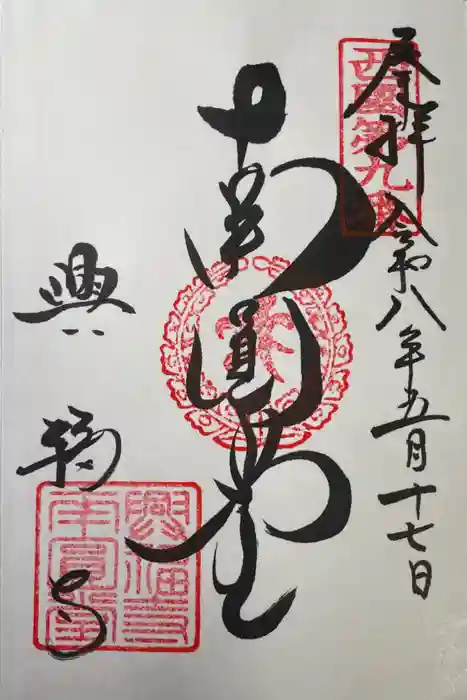 奉拝 令和八年五月十七日
西國第九番
南円堂
興福寺
興福寺
南圓堂